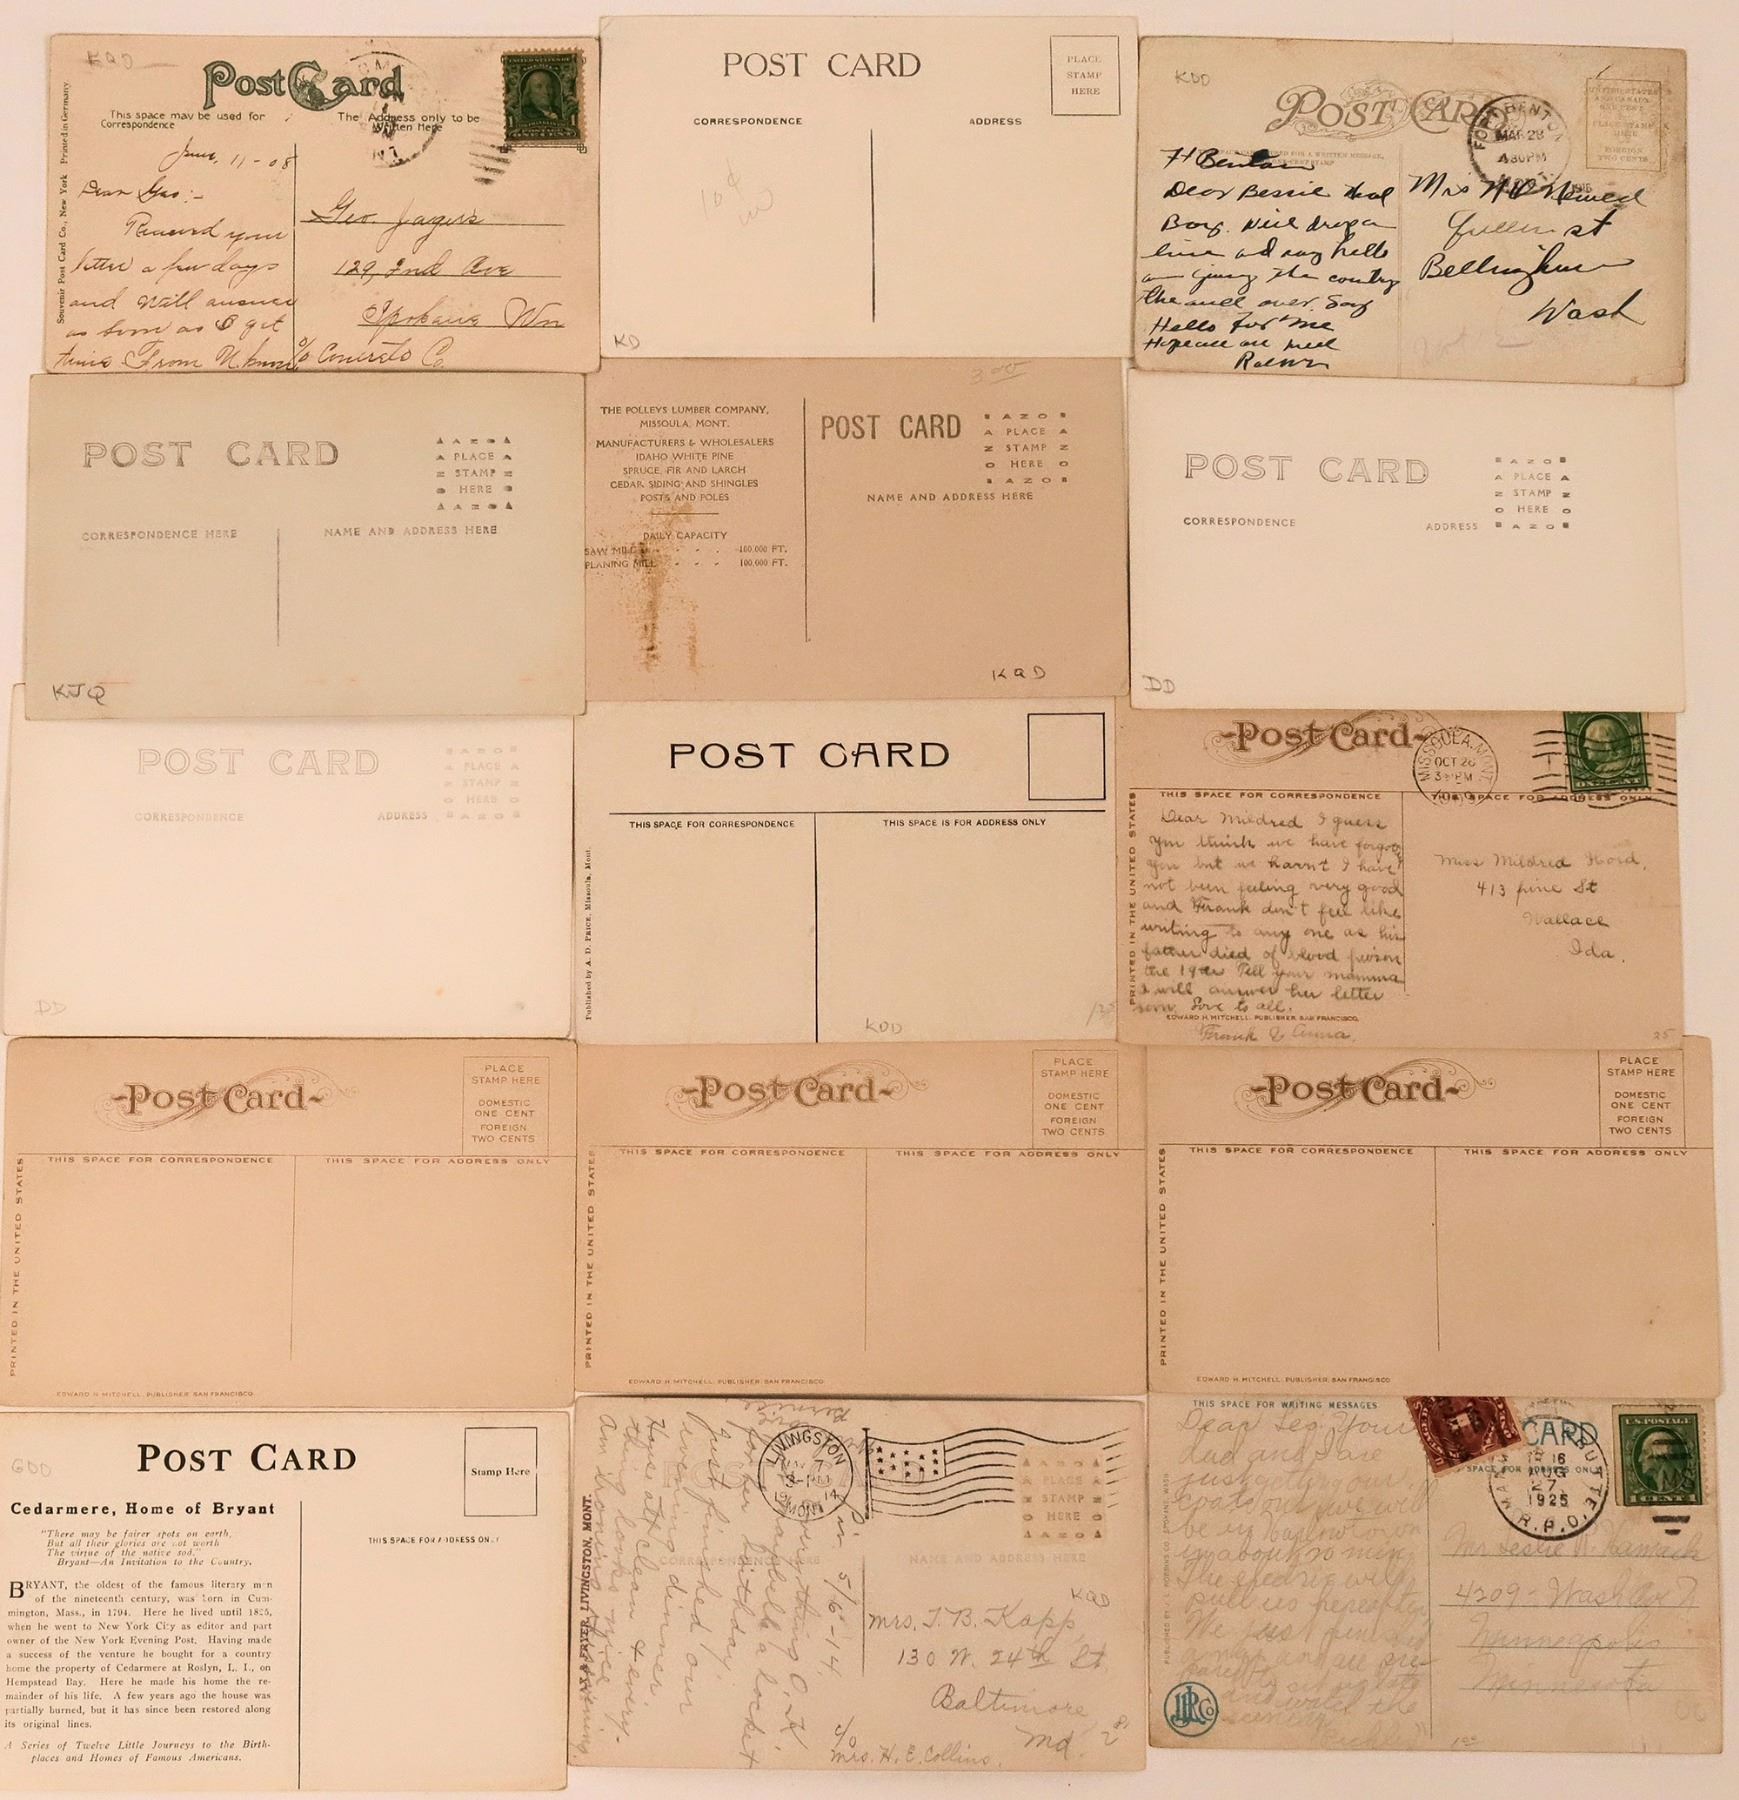 KQD
Post Card
This space may be used for
Correspondence
The Address only to be
Written Here
Souvenir Post Card Co., New York Printed in Germany
11-08
Dear Geo:-
your
letter a few days
and will answer
as soon as I get
time From
Geo. Jagers
129, 2nd Ave
Spokane Wn
c/o Concrete Co.
POST CARD
PLACE
STAMP
HERE
CORRESPONDENCE
ADDRESS
10¢
KD
KDD
POST CARD
FORT BENTON
MAR 28
4 30PM
UNITED STATES
AND CANADA
ONE CENT
PLACE STAMP
HERE
FOREIGN
TWO CENTS
Ft Benton
Dear Bessie and
Boy. Will drop a
line and say hello
am going the country
the well over. Say
Hello for me
Hope all are well
Mrs
Queen st
Bellingham
Wash
POST CARD
AZOA
PLACE
STAMP
HERE
AZOA
CORRESPONDENCE HERE
NAME AND ADDRESS HERE
KJQ
3.00
THE POLLEYS LUMBER COMPANY,
MISSOULA, MONT.
MANUFACTURERS & WHOLESALERS
IDAHO WHITE PINE
SPRUCE, FIR AND LARCH
CEDAR SIDING AND SHINGLES
POSTS AND POLES
DAILY CAPACITY
SAW MILL - - - 160,000 FT.
PLANING MILL - - - 100,000 FT.
POST CARD
AZO
A PLACE A
Z STAMP Z
O HERE O
AZO
NAME AND ADDRESS HERE
KQD
POST CARD
AZO
A PLACE A
Z STAMP Z
O HERE O
AZO
CORRESPONDENCE
ADDRESS
DD
POST CARD
AZO
A PLACE A
Z STAMP Z
O HERE O
AZO
CORRESPONDENCE
ADDRESS
DD
POST CARD
THIS SPACE FOR CORRESPONDENCE
THIS SPACE IS FOR ADDRESS ONLY
Published by A. D. PRICE, Missoula, Mont.
KDD
Post Card
MISSOULA, MONT.
OCT 26
3 PM
1909
THIS SPACE FOR CORRESPONDENCE
THIS SPACE FOR ADDRESS ONLY
PRINTED IN THE UNITED STATES
Dear Mildred I guess
you think we have forgot
you but we havn't I have
not been feeling very good
and Frank don't feel like
writing to any one as his
father died of blood poison
the 19th Tell your mamma
I will answer her letter
soon. Love to all.
EDWARD H. MITCHELL, PUBLISHER, SAN FRANCISCO.
Frank & Anna.
Miss Mildred Hord,
413 pine St
Wallace
Ida.
25
Post Card
PLACE
STAMP HERE
DOMESTIC
ONE CENT
FOREIGN
TWO CENTS
THIS SPACE FOR CORRESPONDENCE
THIS SPACE FOR ADDRESS ONLY
PRINTED IN THE UNITED STATES
EDWARD H. MITCHELL, PUBLISHER, SAN FRANCISCO
Post Card
PLACE
STAMP HERE
DOMESTIC
ONE CENT
FOREIGN
TWO CENTS
THIS SPACE FOR CORRESPONDENCE
THIS SPACE FOR ADDRESS ONLY
PRINTED IN THE UNITED STATES
EDWARD H. MITCHELL, PUBLISHER, SAN FRANCISCO
Post Card
PLACE
STAMP HERE
DOMESTIC
ONE CENT
FOREIGN
TWO CENTS
THIS SPACE FOR CORRESPONDENCE
THIS SPACE FOR ADDRESS ONLY
PRINTED IN THE UNITED STATES
EDWARD H. MITCHELL, PUBLISHER, SAN FRANCISCO
GDD
POST CARD
Stamp Here
Cedarmere, Home of Bryant
"There may be fairer spots on earth,
But all their glories are not worth
The virtue of the native sod."
Bryant—An Invitation to the Country.
THIS SPACE FOR ADDRESS ONLY
BRYANT, the oldest of the famous literary men
of the nineteenth century, was born in Cum-
mington, Mass., in 1794. Here he lived until 1825,
when he went to New York City as editor and part
owner of the New York Evening Post. Having made
a success of the venture he bought for a country
home the property of Cedarmere at Roslyn, L. I., on
Hempstead Bay. Here he made his home the re-
mainder of his life. A few years ago the house was
partially burned, but it has since been restored along
its original lines.
A Series of Twelve Little Journeys to the Birth-
places and Homes of Famous Americans.
LIVINGSTON
MONT.
14
PLACE
STAMP
HERE
AZOA
CORRESPONDENCE HERE
NAME AND ADDRESS HERE
LIVINGSTON, MONT.
Liv. 5/6-14
Everything O.K.
a locket
for her birthday.
Just finished our
evening dinner.
House all clean & every-
thing looks nice.
Am ironing this evening.
KQD
Mrs. T. B. Kapp,
130 W. 24th St.
Baltimore
Md.
c/o
Mrs. H. E. Collins.
THIS SPACE FOR WRITING MESSAGES
CARD
SPACE FOR ADDRESS ONLY
BUTTE
16
AUG
27
1925
R.P.O.
U.S. POSTAGE
Dear Les, Your
dad and I are
just getting our
coats on we will
be in Harlowtown
in about 20 min.
The electric will
pull us
We just finished
Mr Leslie
4209-Wash Av N
Minneapolis
Minnesota